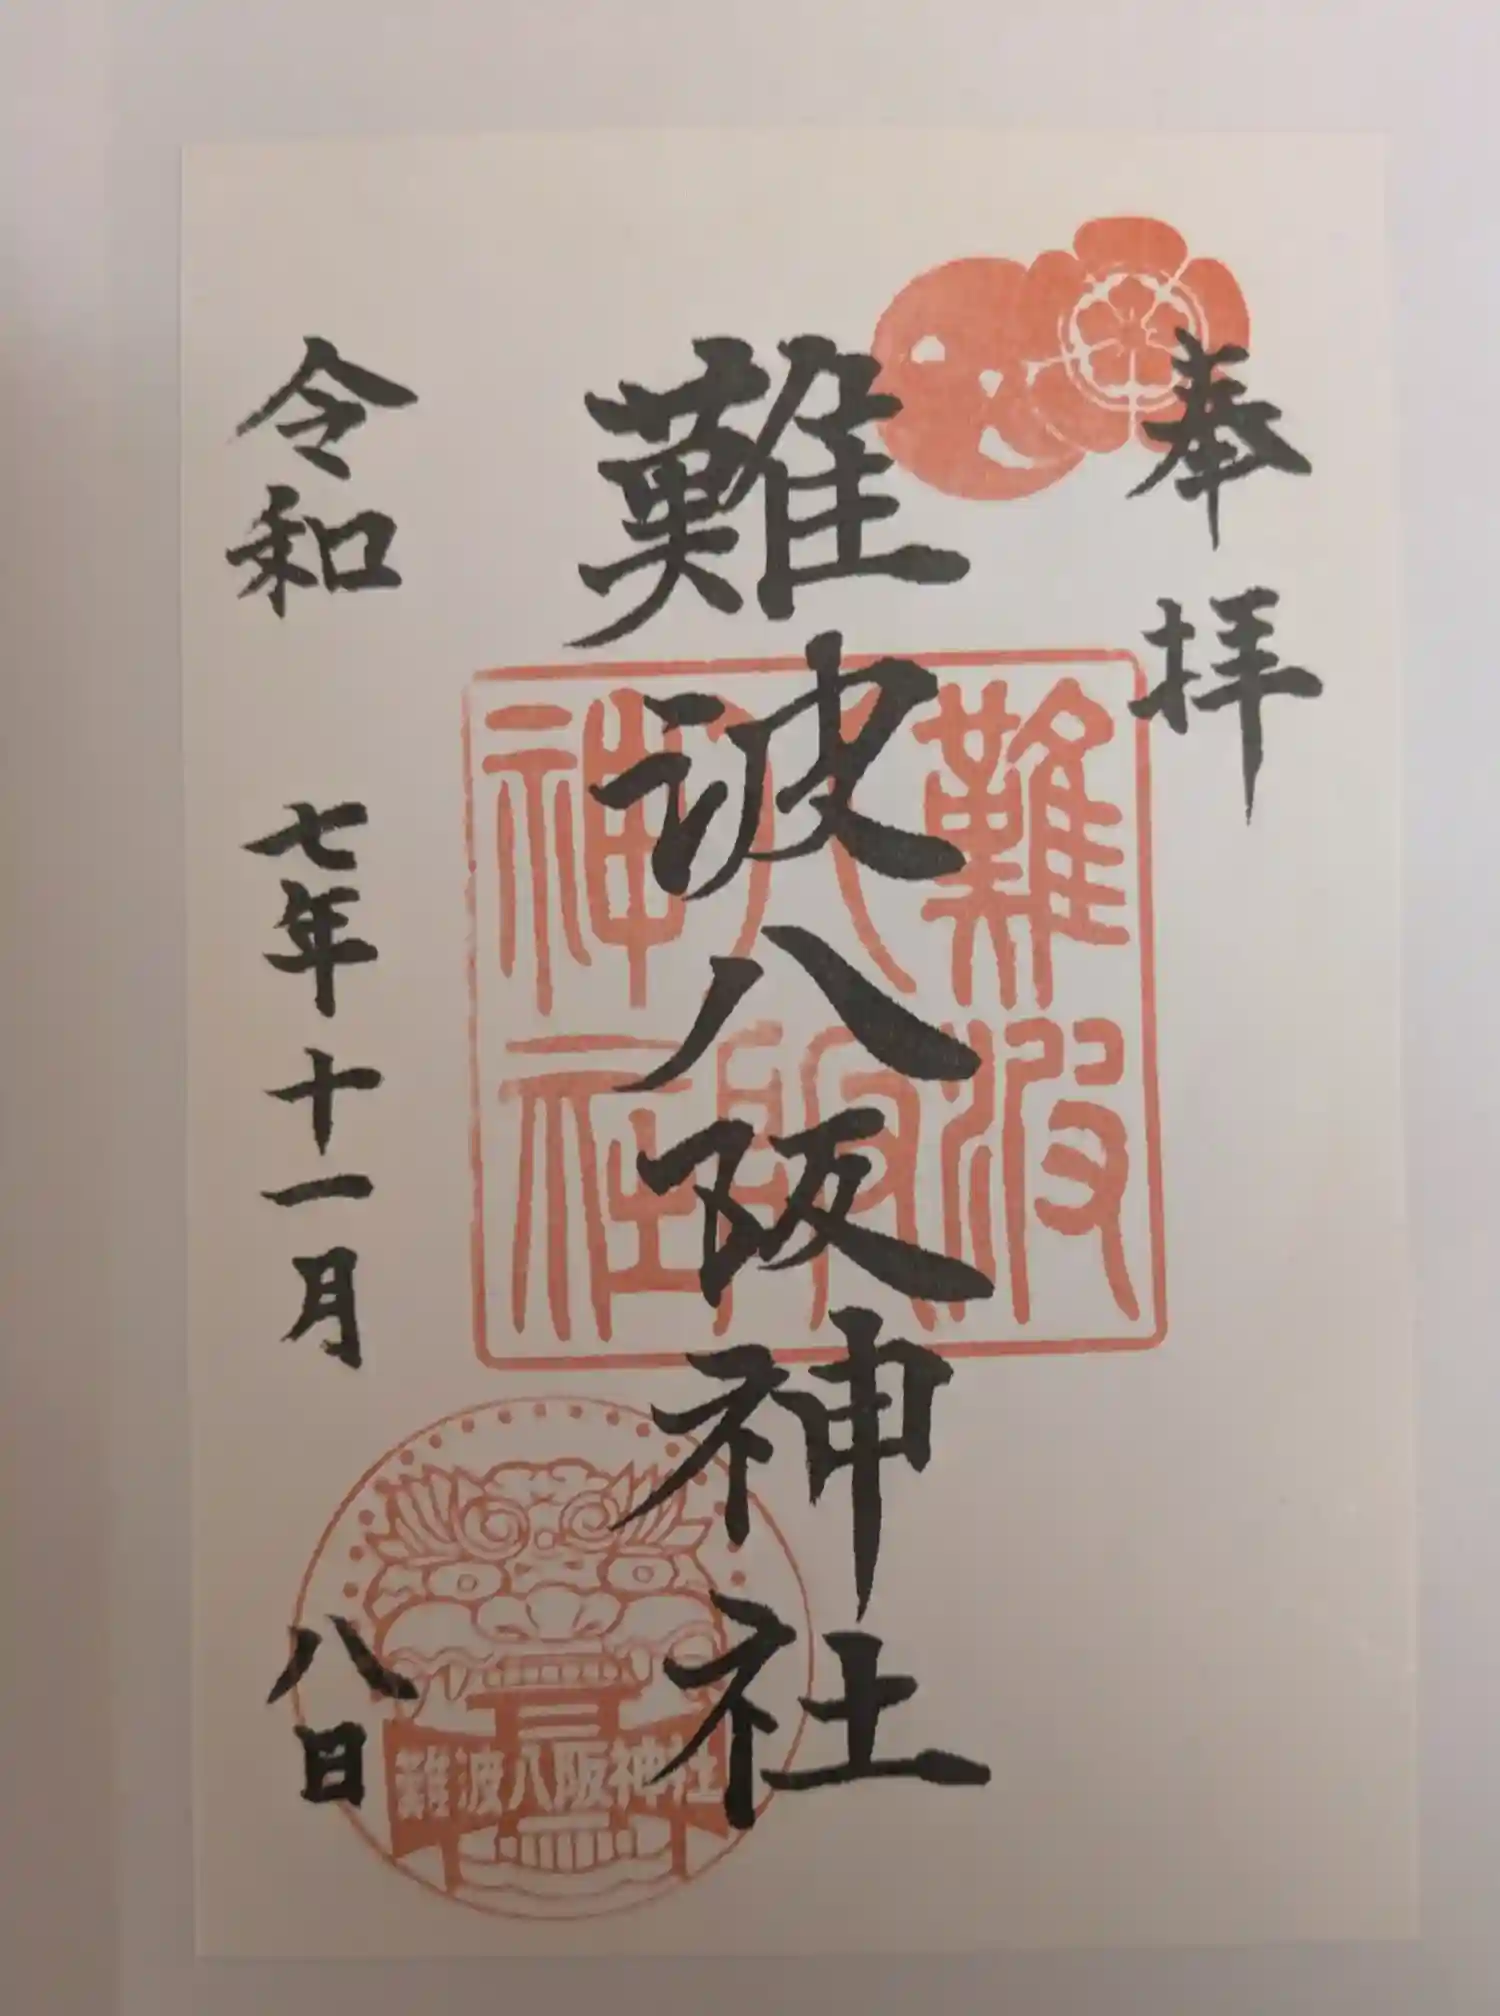 奉拝
難波八阪神社
難波
八阪
神社
令和 七年 十一月 八日
難波八阪神社